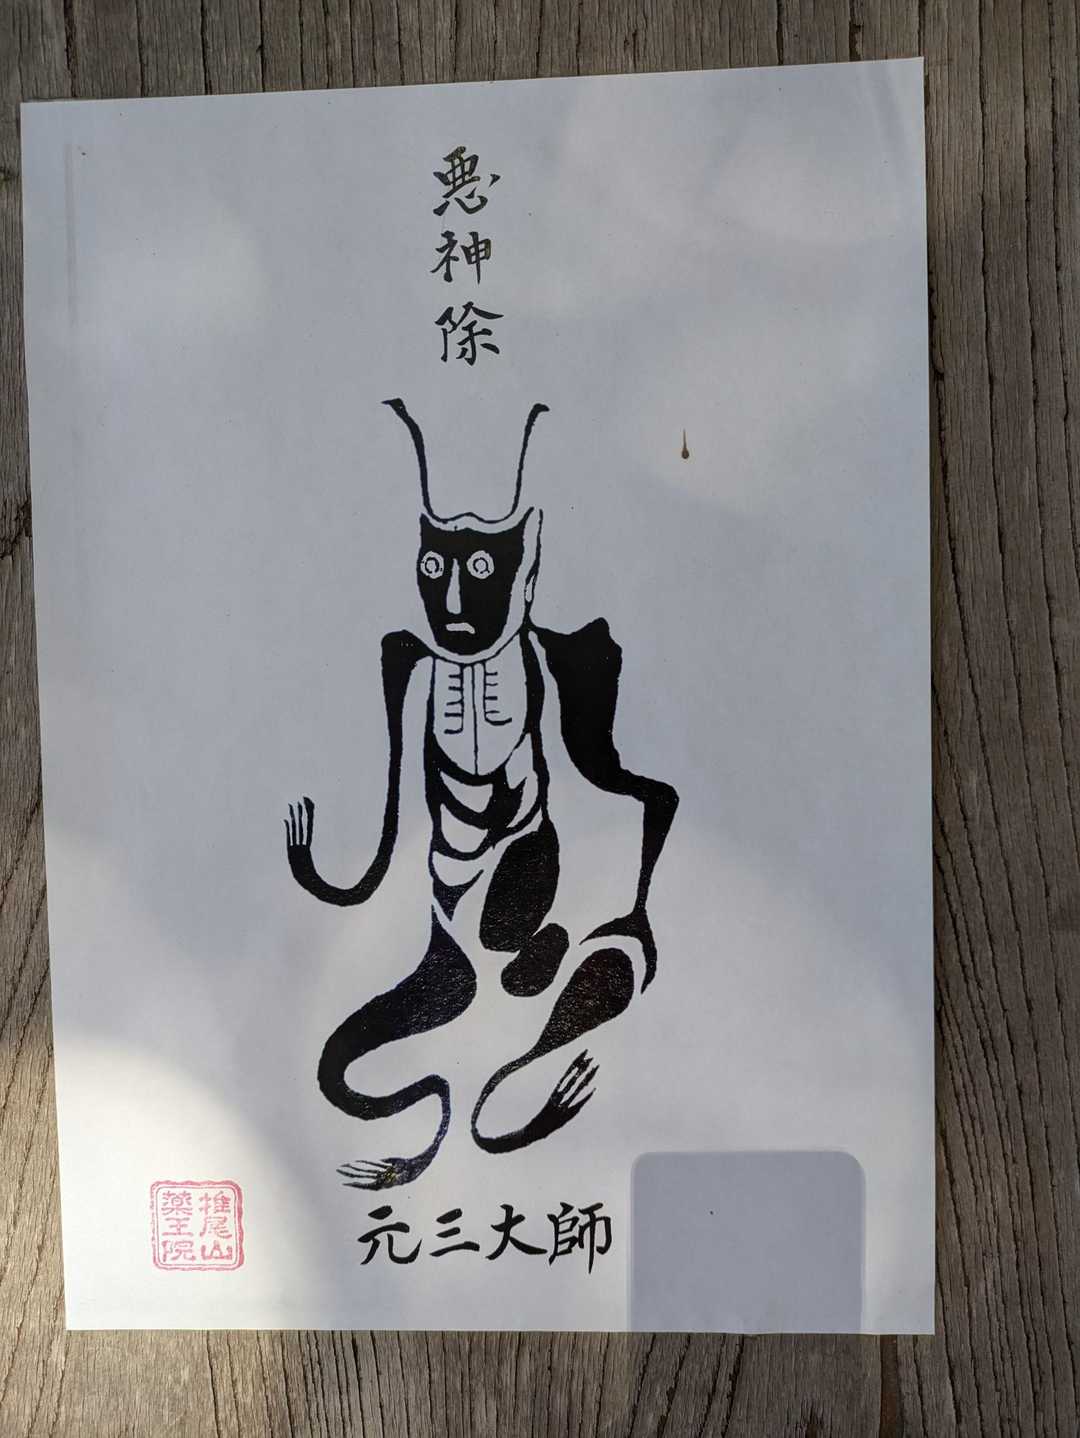 悪神除
元三大師
椎尾山
薬王院